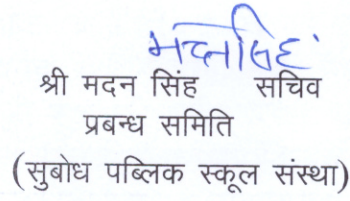 मदनसिंह
श्री मदन सिंह सचिव
प्रबन्ध समिति
(सुबोध पब्लिक स्कूल संस्था)